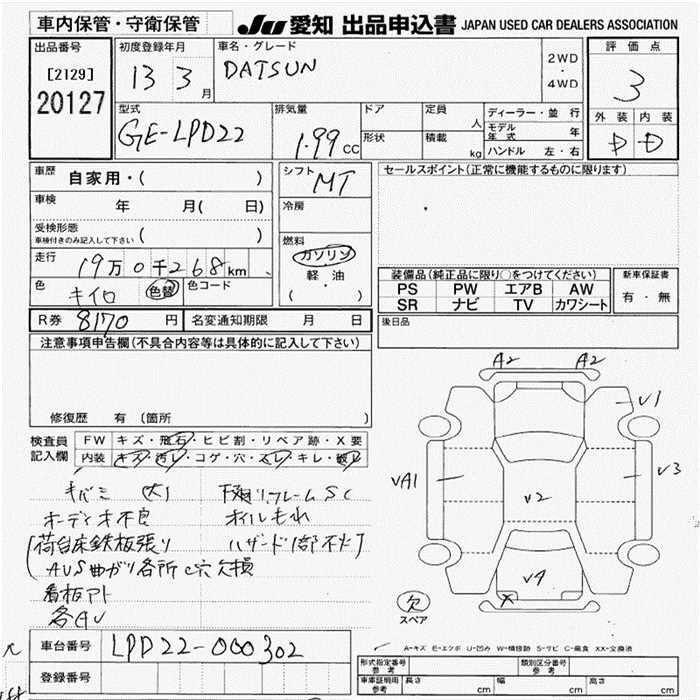 車内保管・守衛保管
JU 愛知 出品申込書 JAPAN USED CAR DEALERS ASSOCIATION
出品番号
[2129]
20127
初度登録年月
13 3月
車名・グレード
DATSUN
2WD
・
4WD
評価点
3
外装 内装
D D
型式
GE-LPD22
排気量
1.99 CC
ドア
形状
定員 人
積載 kg
ディーラー・並行
モデル年式 年
ハンドル 左・右
車歴 自家用・( )
車検 年 月( 日)
受検形態
車検付きのみ記入して下さい ( )
走行 19万0千268km
色 キイロ 色替 色コード
シフト MT
冷房
燃料
ガソリン
軽・油
( ・ )
セールスポイント(正常に機能するものに限ります)
装備品(純正品に限り○をつけてください)
PS PW エアB AW
SR ナビ TV カワシート
新車保証書
有・無
後日品
R券 8170 円 名変通知期限 月 日
注意事項申告欄(不具合内容等は具体的に記入して下さい)
修復歴 有 (箇所 )
検査員記入欄
FW キズ・飛石・ヒビ割・リペア跡・X要
内装 キズ・汚レ・コゲ・穴・スレ・キレ・破レ
キバミ 大
オーディオ不良
荷台床鉄板張り
AUS曲ガリ各所 穴 欠損
看板アト
各AU
下廻りフレームSC
オイルモれ
ハザード1部不灯
A2 A2
V1
VA1
V2
V3
V4
X
欠
スペア
A-キズ E-エクボ U-凹み W-補修跡 S-サビ C-腐食 XX-交換済
車台番号 LPD22-000302
登録番号
型式指定番号 参考
類別区分番号 参考
車庫証明用 参考 長さ cm 幅 cm 高さ cm